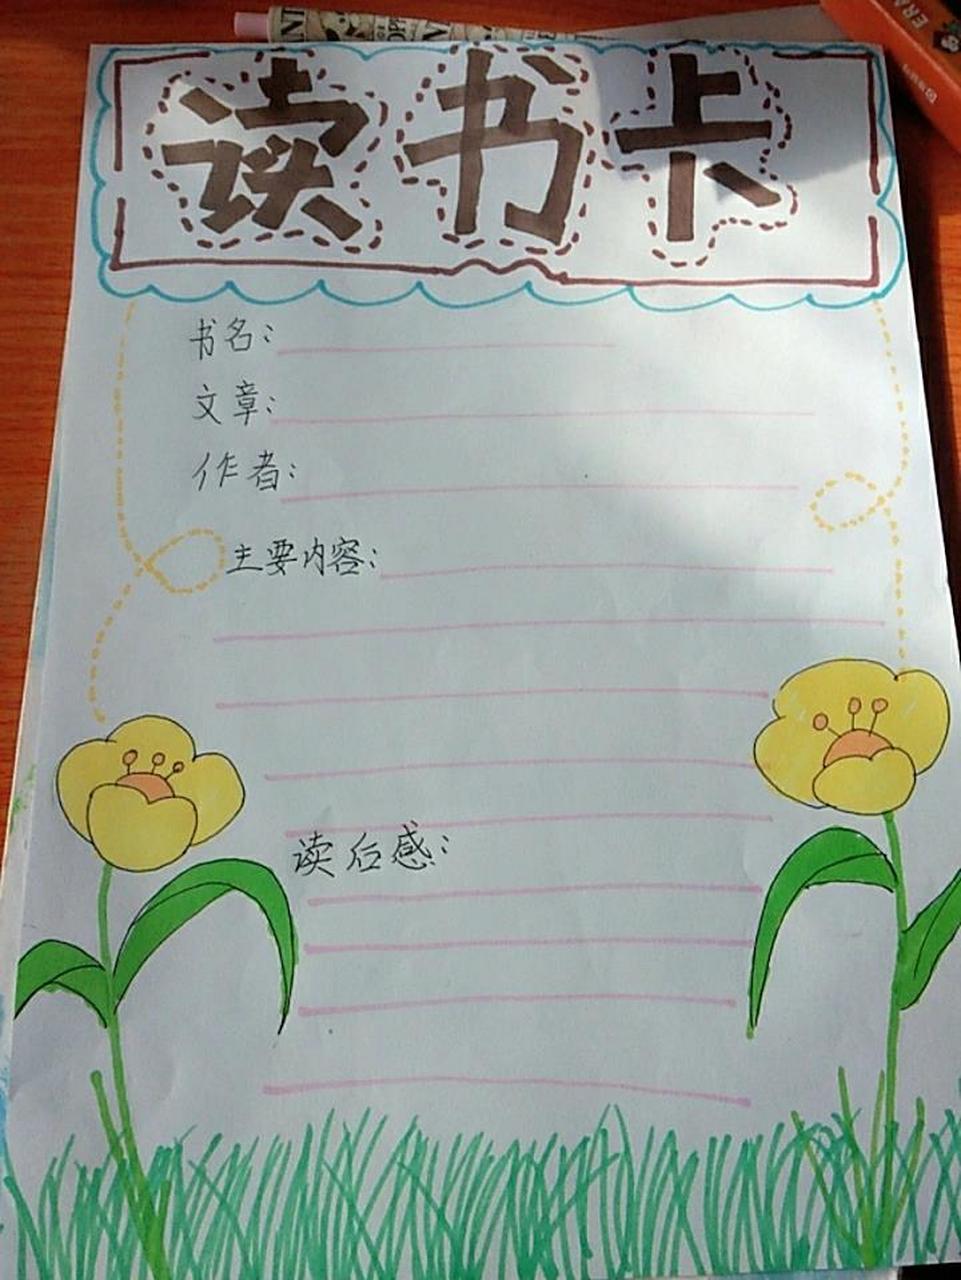 读书卡
书名：
文章：
作者：
主要内容：
读后感：